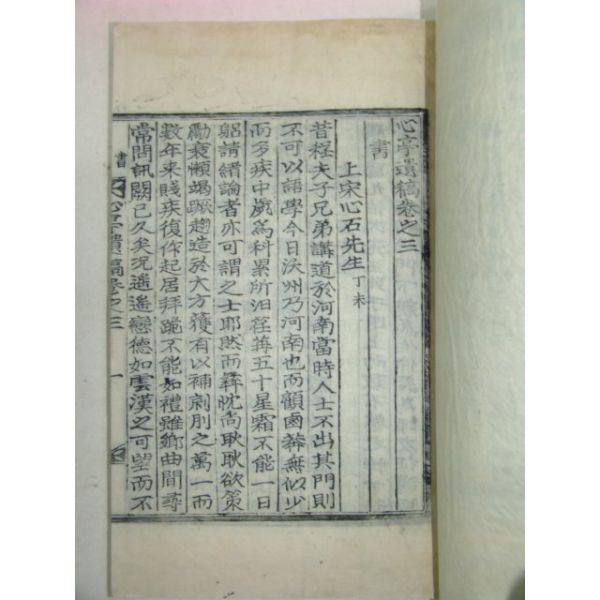 心亭遺稿卷之三
書
上宋心石先生 丁未
昔程夫子兄弟講道於河南當時人士不出其門則
不可以語學今日沃州乃河南也而顧鹵莽無似少
而多疾中歲爲科累所汨荏苒五十星霜不能一日
躬請緖論者亦可謂之士耶然而彛忱尙耿耿欲策
勵衰懶竭蹶趨造於大方獲有以補劑刖之萬一而
數年來賤疾復作起居拜跪不能如禮雖鄉曲間尋
常問訊闕已久矣况遙遙戀德如雲漢之可望而不
書 心亭遺稿卷之三 一